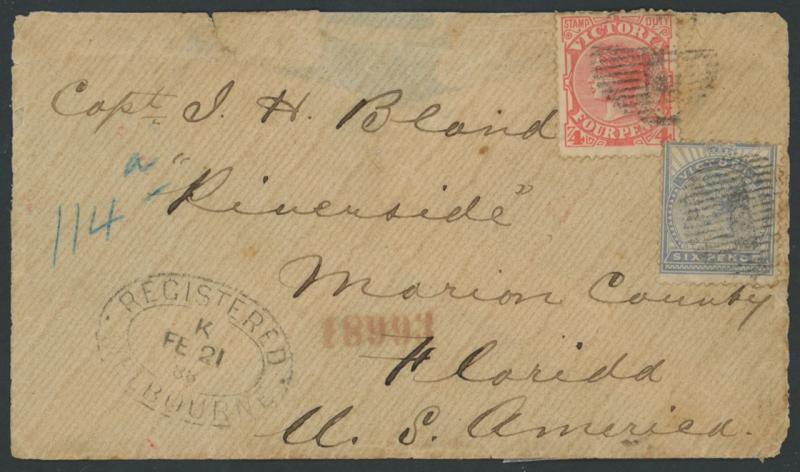 STAMP DUTY
VICTORIA
FOUR PENCE
4 4
VICTORIA
SIX PENCE
Capt. J. H. Bland
"Riverside"
114 a
Marion County
18993
Florida
U. S. America.
REGISTERED
K
FE 21
88
MELBOURNE